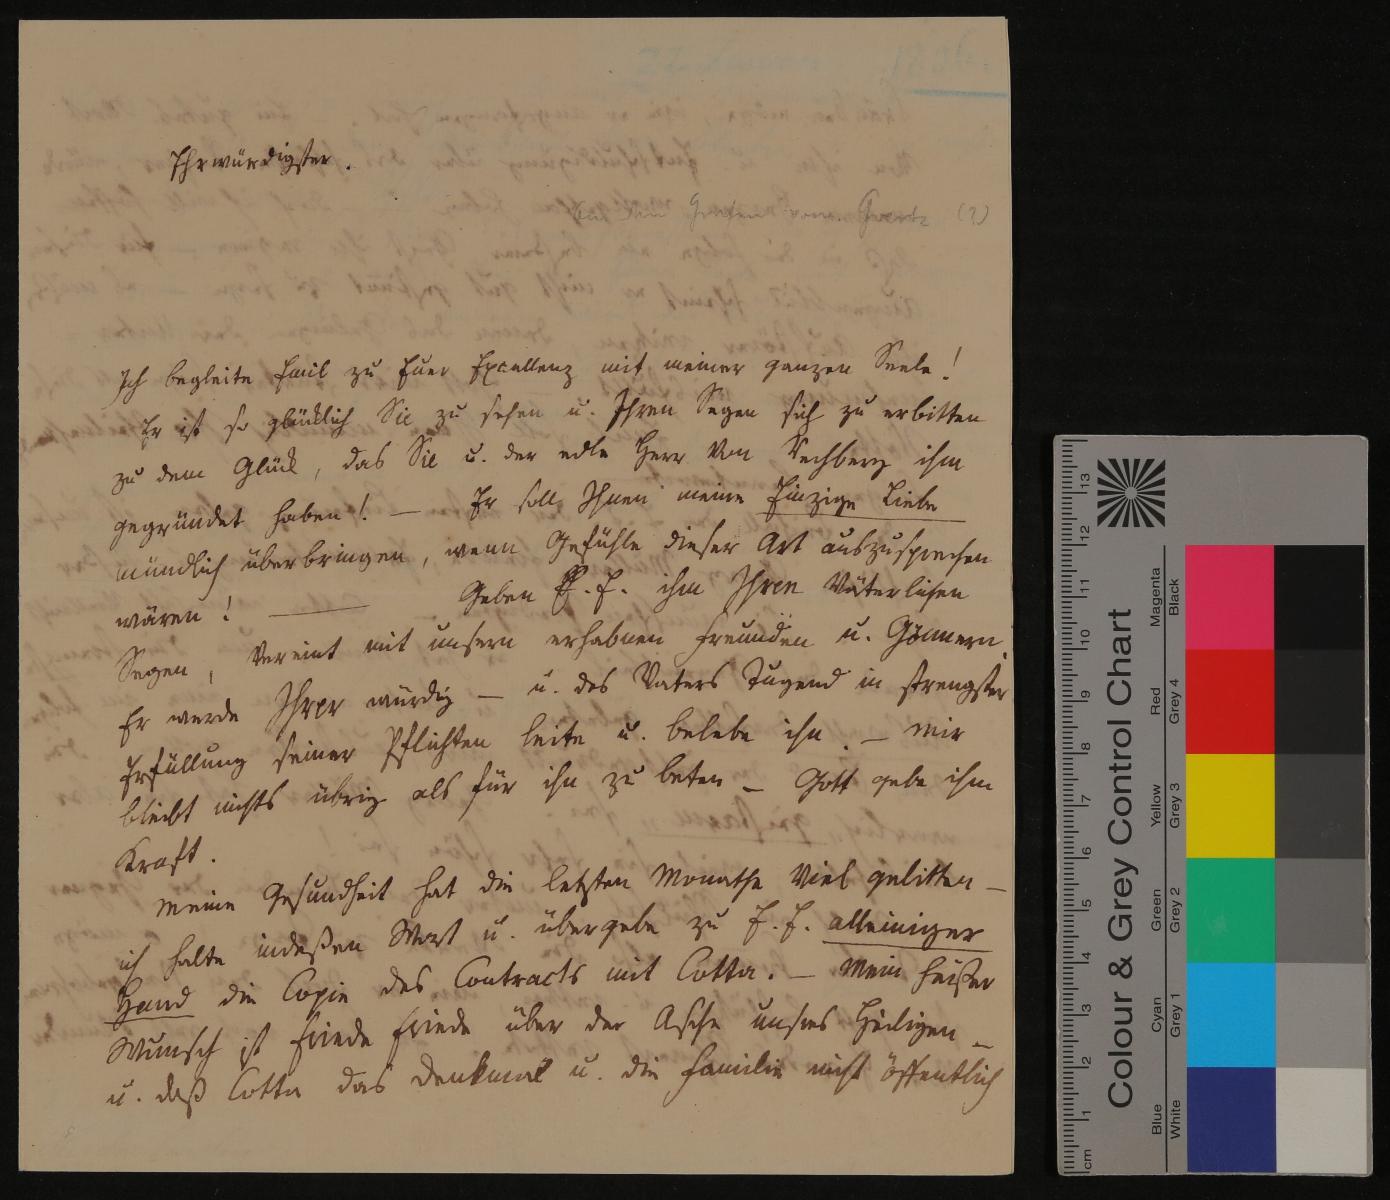 Ehrwürdigster.
An den Grafen von Goertz (?)
Ich begleite Emil zu Euer Excellenz mit meiner ganzen Seele!
Er ist so glücklich Sie zu sehen u. Ihren Segen sich zu erbitten
zu dem Glück, das Sie u. der edle Herr von Rechberg ihm
gegründet haben! — Er soll Ihnen meine Einzige Liebe
mündlich überbringen, wenn Gefühle dieser Art auszusprechen
wären! — Geben E. E. ihm Ihren Väterlichen
Segen, Vereint mit unsern erhabnen Freunden u. Gönnern.
Er werde Ihrer würdig — u. des Vaters Tugend in strengster
Erfüllung seiner Pflichten leite u. belebe ihn. — Mir
bleibt nichts übrig als für ihn zu beten — Gott gebe ihm
Kraft.
Meine Gesundheit hat die letzten Monathe Viel gelitten —
ich halte indeßen Wort u. übergebe zu E. E. alleiniger
Hand die Copie des Contracts mit Cotta. — Mein heißer
Wunsch ist Friede Friede über der Asche unsres Heiligen —
u. daß Cotta das Denkmal u. die Familie nicht öffentlich
Colour & Grey Control Chart
Blue Cyan Green Yellow Red Magenta
White Grey 1 Grey 2 Grey 3 Grey 4 Black
cm 1 2 3 4 5 6 7 8 9 10 11 12 13